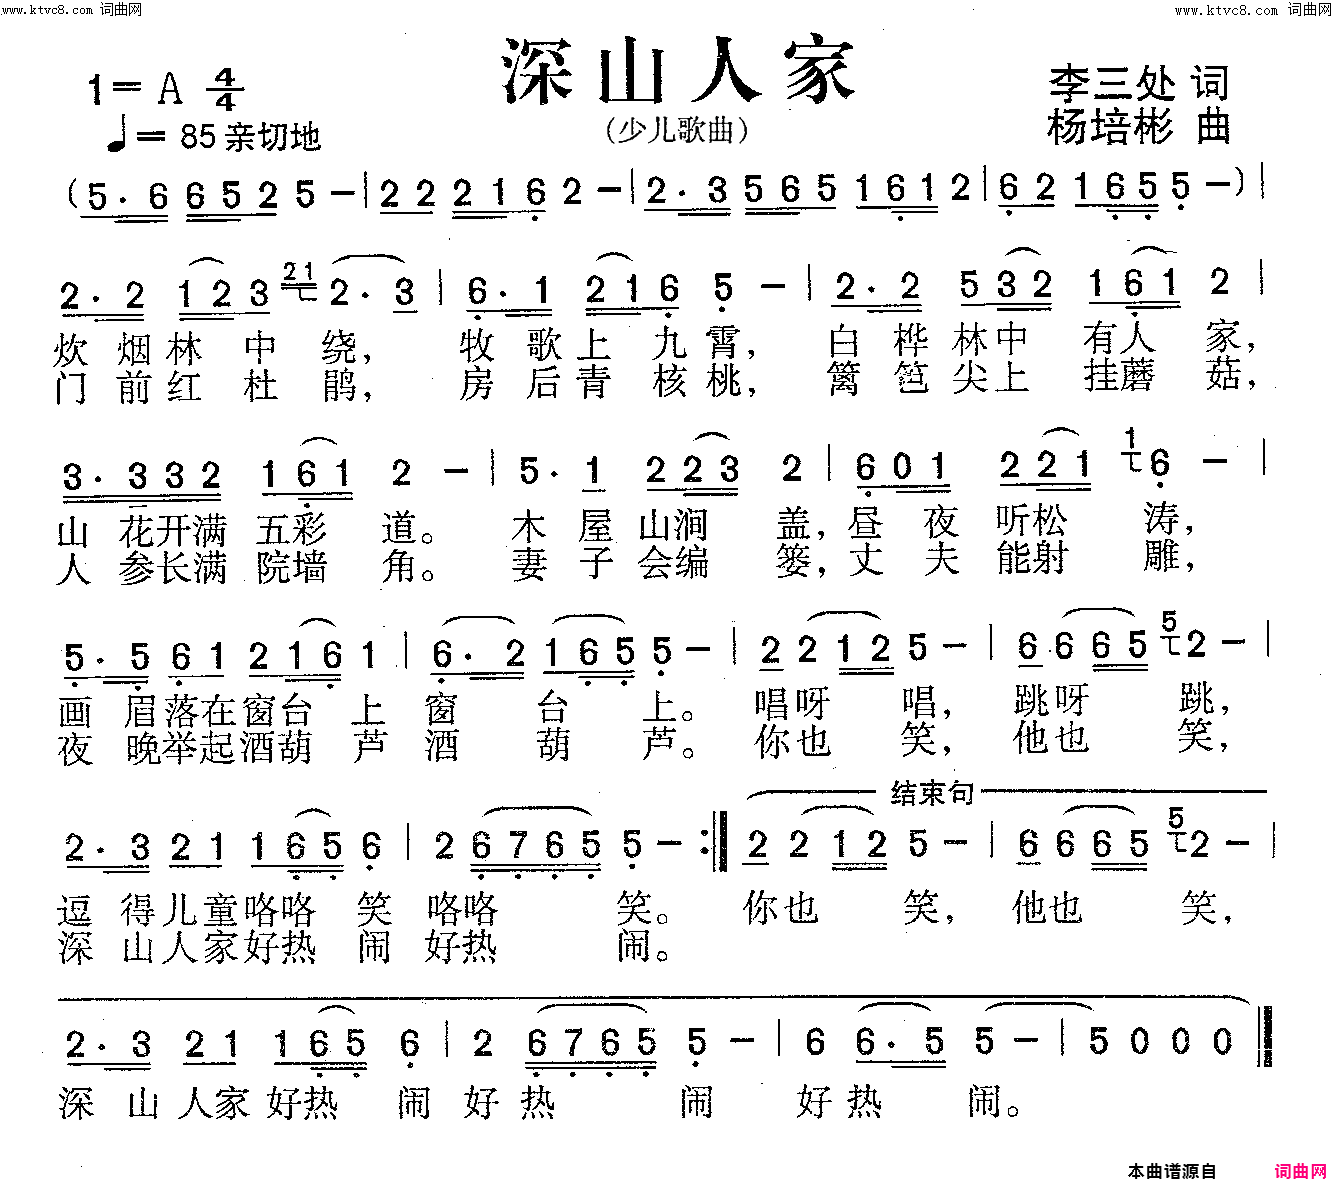 www.ktvc8.com 词曲网
www.ktvc8.com 词曲网
深山人家
(少儿歌曲)
1= A 4/4
♩= 85 亲切地
李三处 词
杨培彬 曲
( 5·6 6525 - | 22 2162 - | 2·3 565 1612 | 62 1655 - ) |
2·2 123 21 2·3 | 6·1 216 5 - | 2·2 532 161 2 |
炊烟林中绕, 牧歌上九霄, 白桦林中有人家,
门前红杜鹃, 房后青核桃, 篱笆尖上挂蘑菇,
3·332 161 2 - | 5·1 223 2 | 601 221 1 6 - |
山花开满五彩道。 木屋山涧盖, 昼夜听松涛,
人参长满院墙角。 妻子会编篓, 丈夫能射雕,
5·5 61 216 1 | 6·2 1655 - | 22125 - | 6665 5 2 - |
画眉落在窗台上窗台上。 唱呀唱, 跳呀跳,
夜晚举起酒葫芦酒葫芦。 你也笑, 他也笑,
结束句
2·3 21 165 6 | 2 6765 5 - :‖ 22125 - | 6665 5 2 - |
逗得儿童咯咯笑咯咯笑。 你也笑, 他也笑,
深山人家好热闹好热闹。
2·3 21 165 6 | 2 6765 5 - | 6 6·5 5 - | 5 0 0 0 ‖
深山人家好热闹好热闹好热闹。
本曲谱源自 词曲网